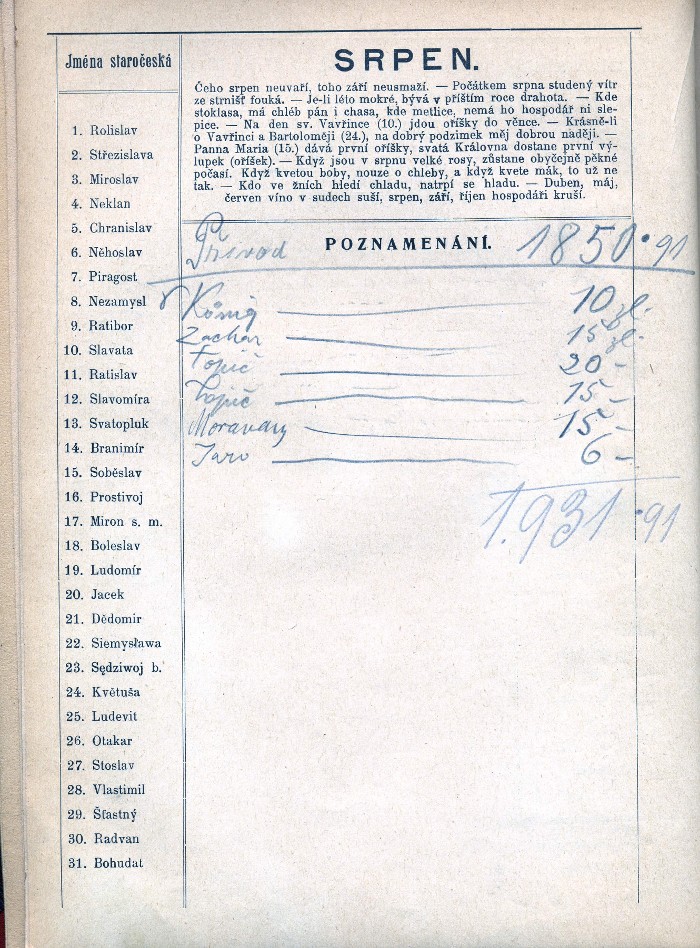 Jména staročeská
1. Rolislav
2. Střezislava
3. Miroslav
4. Neklan
5. Chranislav
6. Něhoslav
7. Piragost
8. Nezamysl
9. Ratibor
10. Slavata
11. Ratislav
12. Slavomíra
13. Svatopluk
14. Branimír
15. Soběslav
16. Prostivoj
17. Miron s. m.
18. Boleslav
19. Ludomír
20. Jacek
21. Dědomir
22. Siemysława
23. Sędziwoj b.
24. Květuša
25. Ludevit
26. Otakar
27. Stoslav
28. Vlastimil
29. Šťastný
30. Radvan
31. Bohudat
SRPEN.
Čeho srpen neuvaří, toho září neusmaží. — Počátkem srpna studený vítr
ze strnišť fouká. — Je-li léto mokré, bývá v příštím roce drahota. — Kde
stoklasa, má chléb pán i chasa, kde metlice, nemá ho hospodář ni sle-
pice. — Na den sv. Vavřince (10.) jdou oříšky do věnce. — Krásně-li
o Vavřinci a Bartoloměji (24.), na dobrý podzimek měj dobrou naději. —
Panna Maria (15.) dává první oříšky, svatá Královna dostane první vý-
lupek (oříšek). — Když jsou v srpnu velké rosy, zůstane obyčejně pěkné
počasí. Když kvetou boby, nouze o chleby, a když kvete mák, to už ne
tak. — Kdo ve žních hledí chladu, natrpí se hladu. — Duben, máj,
červen víno v sudech suší, srpen, září, říjen hospodáři kruší.
POZNAMENÁNÍ.
Přivod 1850·91
König — 10 zl.
Zachar — 15 zl.
Topič — 20 –
— 15 –
Moravany — 15 –
Jaro — 6 –
1.931·91